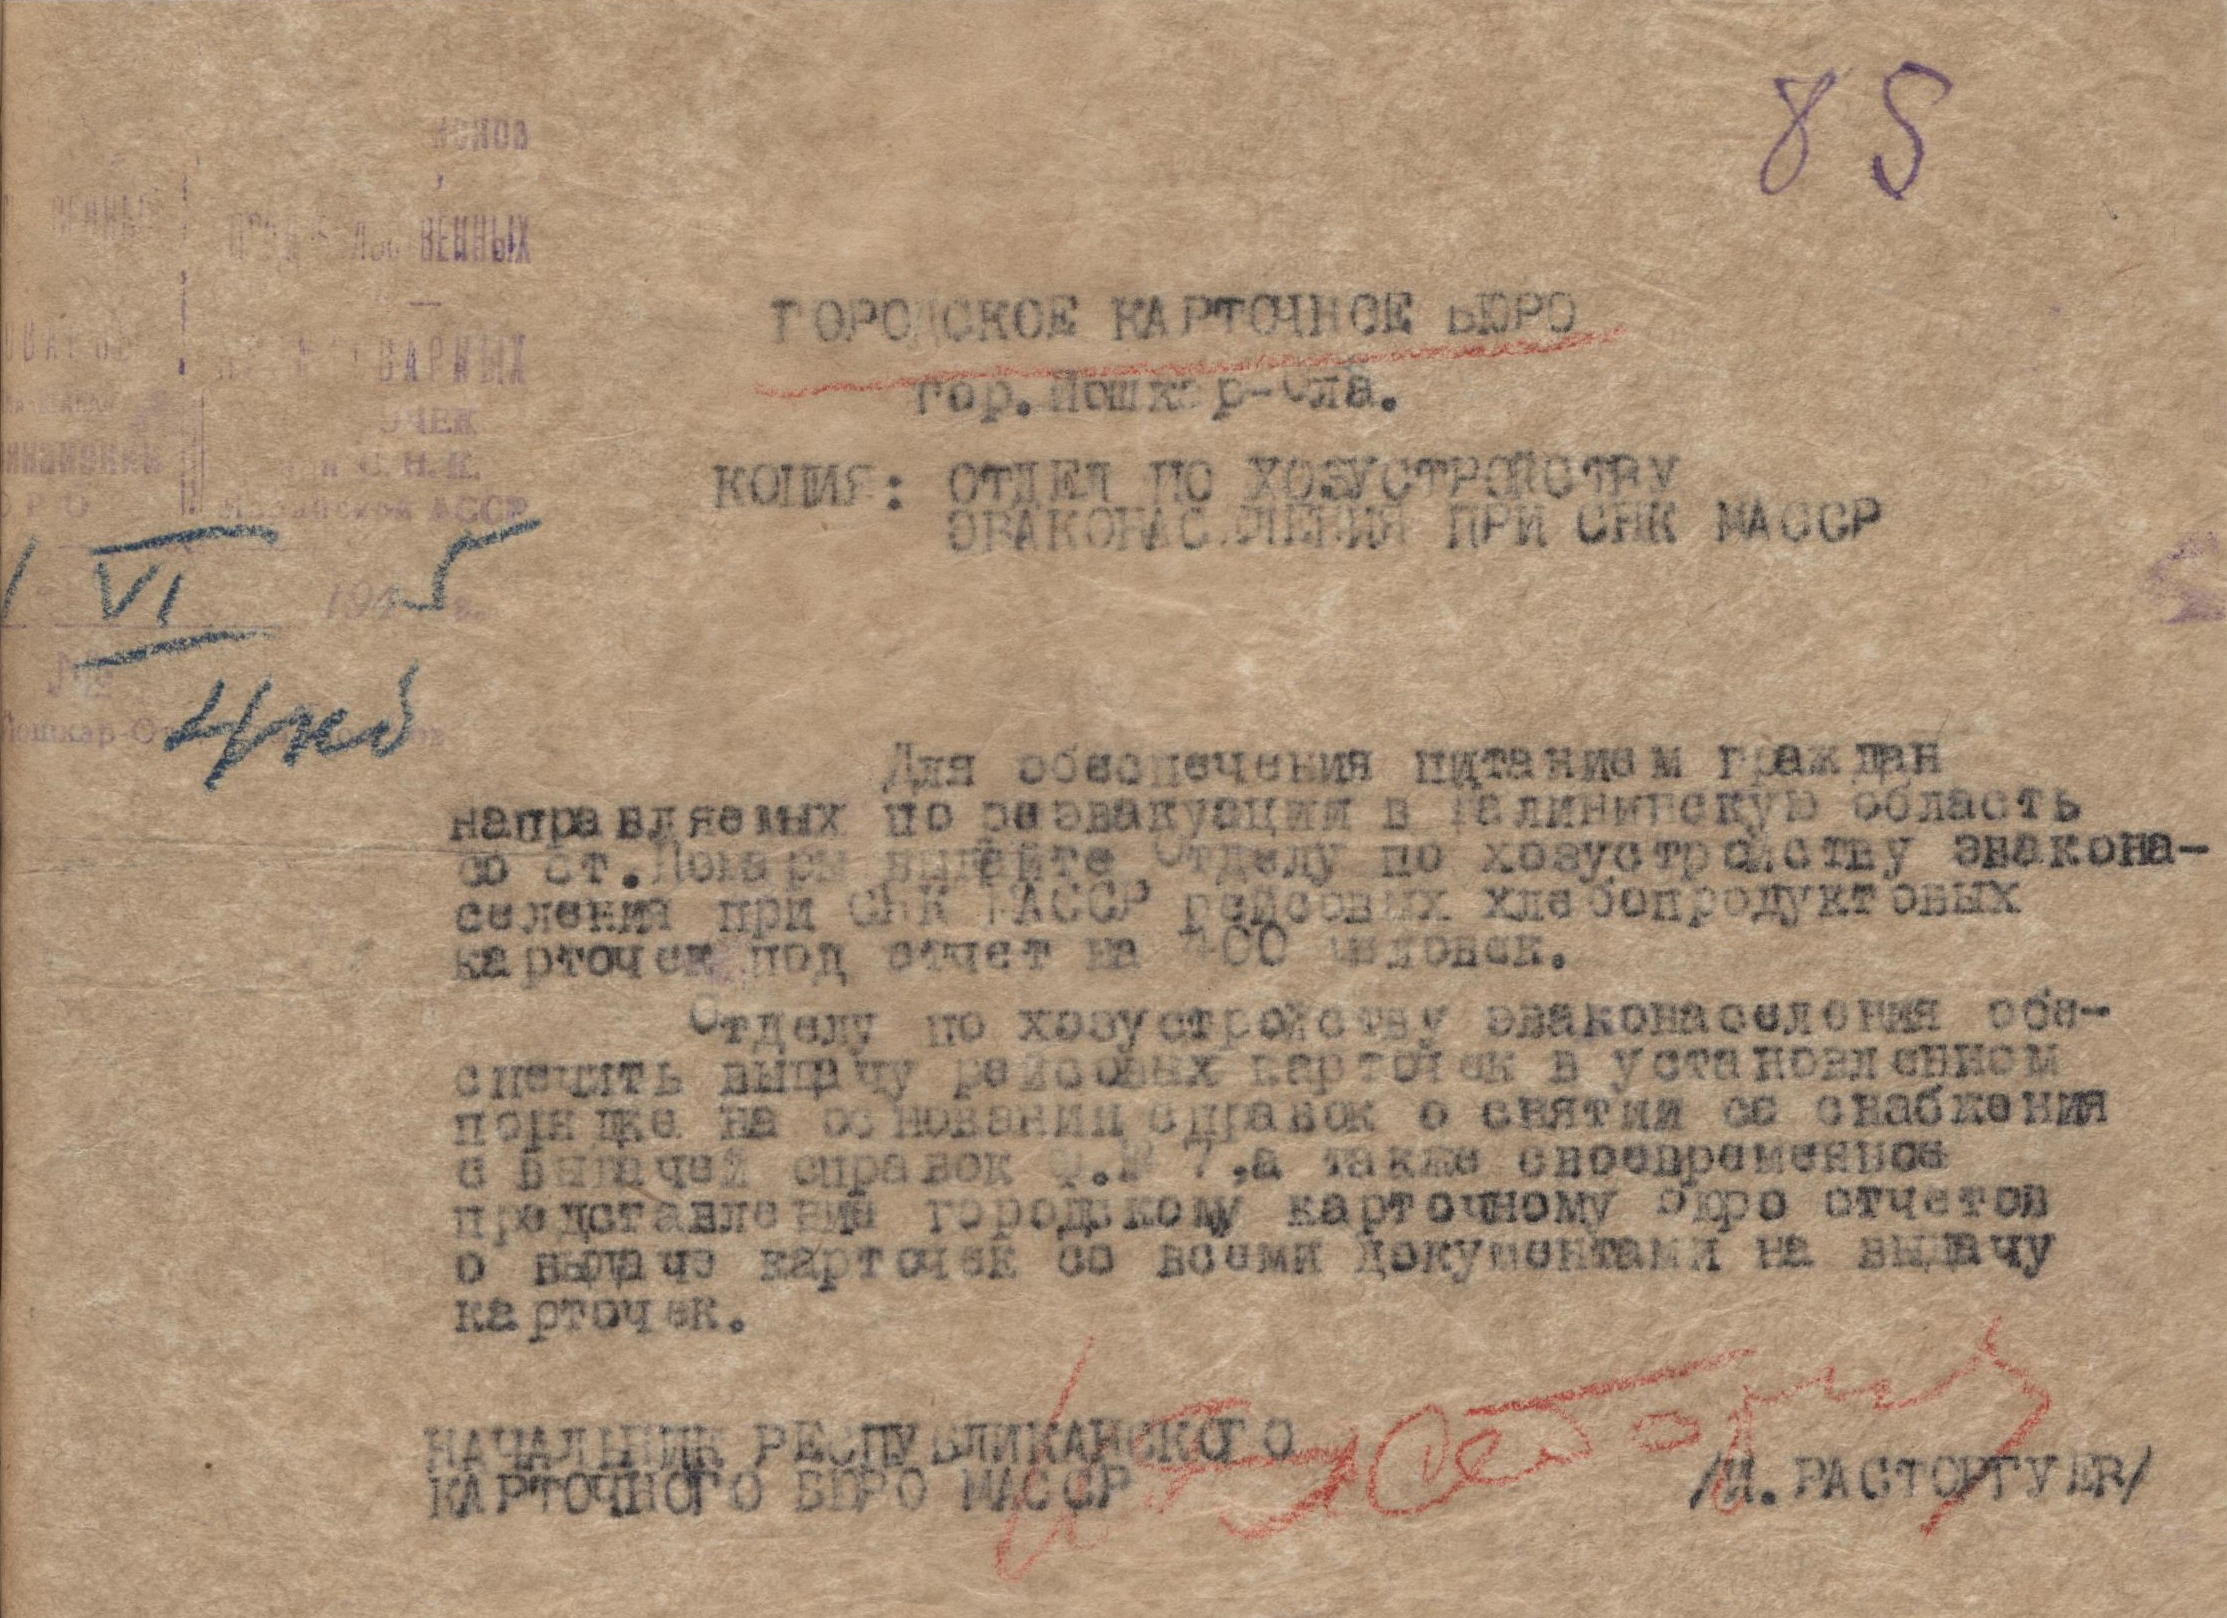 85
ВЕННЫХ
ОЧЕК
при С. Н. К.
Марийской АССР
VI 1945 г.
№
Йошкар-Ола
ГОРОДСКОЕ КАРТОЧНОЕ БЮРО
гор. Йошкар-Ола.
КОПИЯ: ОТДЕЛ ПО ХОЗУСТРОЙСТВУ
ЭВАКОНАСЕЛЕНИЯ ПРИ СНК МАССР
Для обеспечения питанием граждан
направляемых по реэвакуации в Калининскую область
со ст. Помары выдайте Отделу по хозустройству эвакона-
селения при СНК МАССР рейсовых хлебопродуктовых
карточек под отчет на 400 человек.
Отделу по хозустройству эваконаселения обе-
спечить выдачу рейсовых карточек в установленном
порядке на основании справок о снятии со снабжения
с выдачей справок ф.№ 7,а также своевременное
представление городскому карточному бюро отчетов
о выдаче карточек со всеми документами на выдачу
карточек.
НАЧАЛЬНИК РЕСПУБЛИКАНСКОГО
КАРТОЧНОГО БЮРО МАССР /И.РАСТОРГУЕВ/